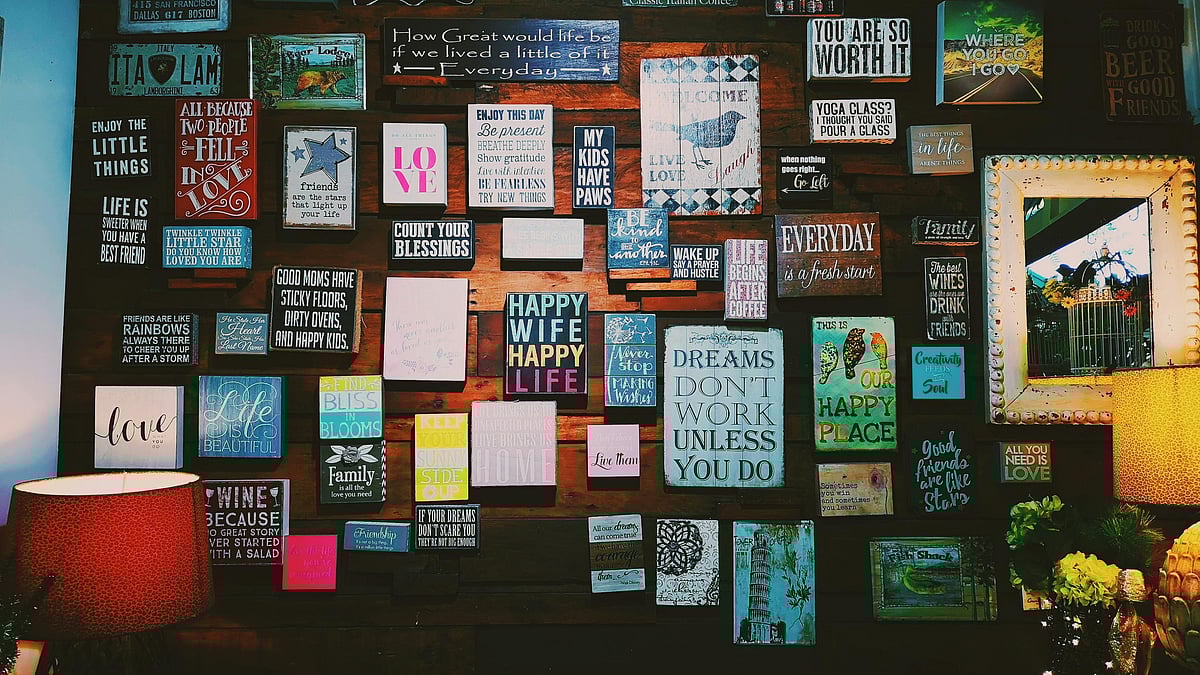 415 SAN FRANCISCO
DALLAS 617 BOSTON
Classic Italian Coffee
ITALY
ITA LAM
LAMBORGHINI
Lodge
How Great would life be
if we lived a little of it
Everyday
YOU ARE SO
WORTH IT
WHERE
YOU GO
I GO
DRINK
GOOD
BEER
GOOD
FRIENDS
ENJOY THE
LITTLE
THINGS
ALL BECAUSE
TWO PEOPLE
FELL
IN
LOVE
friends
are the stars
that light up
your life
DO ALL THINGS
LO
VE
ENJOY THIS DAY
Be present
BREATHE DEEPLY
Show gratitude
Live with intention
BE FEARLESS
TRY NEW THINGS
MY
KIDS
HAVE
PAWS
WELCOME
LIVE
LOVE
Laugh
YOGA CLASS?
I THOUGHT YOU SAID
POUR A GLASS
THE BEST THINGS
in life
AREN'T THINGS
when nothing
goes right...
Go Left
LIFE IS
SWEETER WHEN
YOU HAVE A
BEST FRIEND
TWINKLE TWINKLE
LITTLE STAR
DO YOU KNOW HOW
LOVED YOU ARE
COUNT YOUR
BLESSINGS
BE
kind
to one
another
WAKE UP
SAY A PRAYER
AND HUSTLE
LIFE
BEGINS
AFTER
COFFEE
EVERYDAY
is a fresh start
Family
The best
WINES
are the ones we
DRINK
with
FRIENDS
GOOD MOMS HAVE
STICKY FLOORS,
DIRTY OVENS,
AND HAPPY KIDS.
FRIENDS ARE LIKE
RAINBOWS
ALWAYS THERE
TO CHEER YOU UP
AFTER A STORM
He Stole Her
Heart
Last Name
HAPPY
WIFE
HAPPY
LIFE
Never
stop
MAKING
Wishes
DREAMS
DON'T
WORK
UNLESS
YOU DO
THIS IS
OUR
HAPPY
PLACE
Creativity
FEEDS
Soul
love
Life
IS
BEAUTIFUL
FIND
BLISS
IN
BLOOMS
KEEP
YOUR
SUNNY
SIDE
UP
HOME
Live them
Family
is all the
love you need
Sometimes
you win
and sometimes
you learn
Good
friends
are like
Stars
ALL YOU
NEED IS
LOVE
WINE
BECAUSE
NO GREAT STORY
EVER STARTED
WITH A SALAD
Friendship
IF YOUR DREAMS
DON'T SCARE YOU
THEY'RE NOT BIG ENOUGH
All our dreams
can come true
courage
them...
Fish Shack